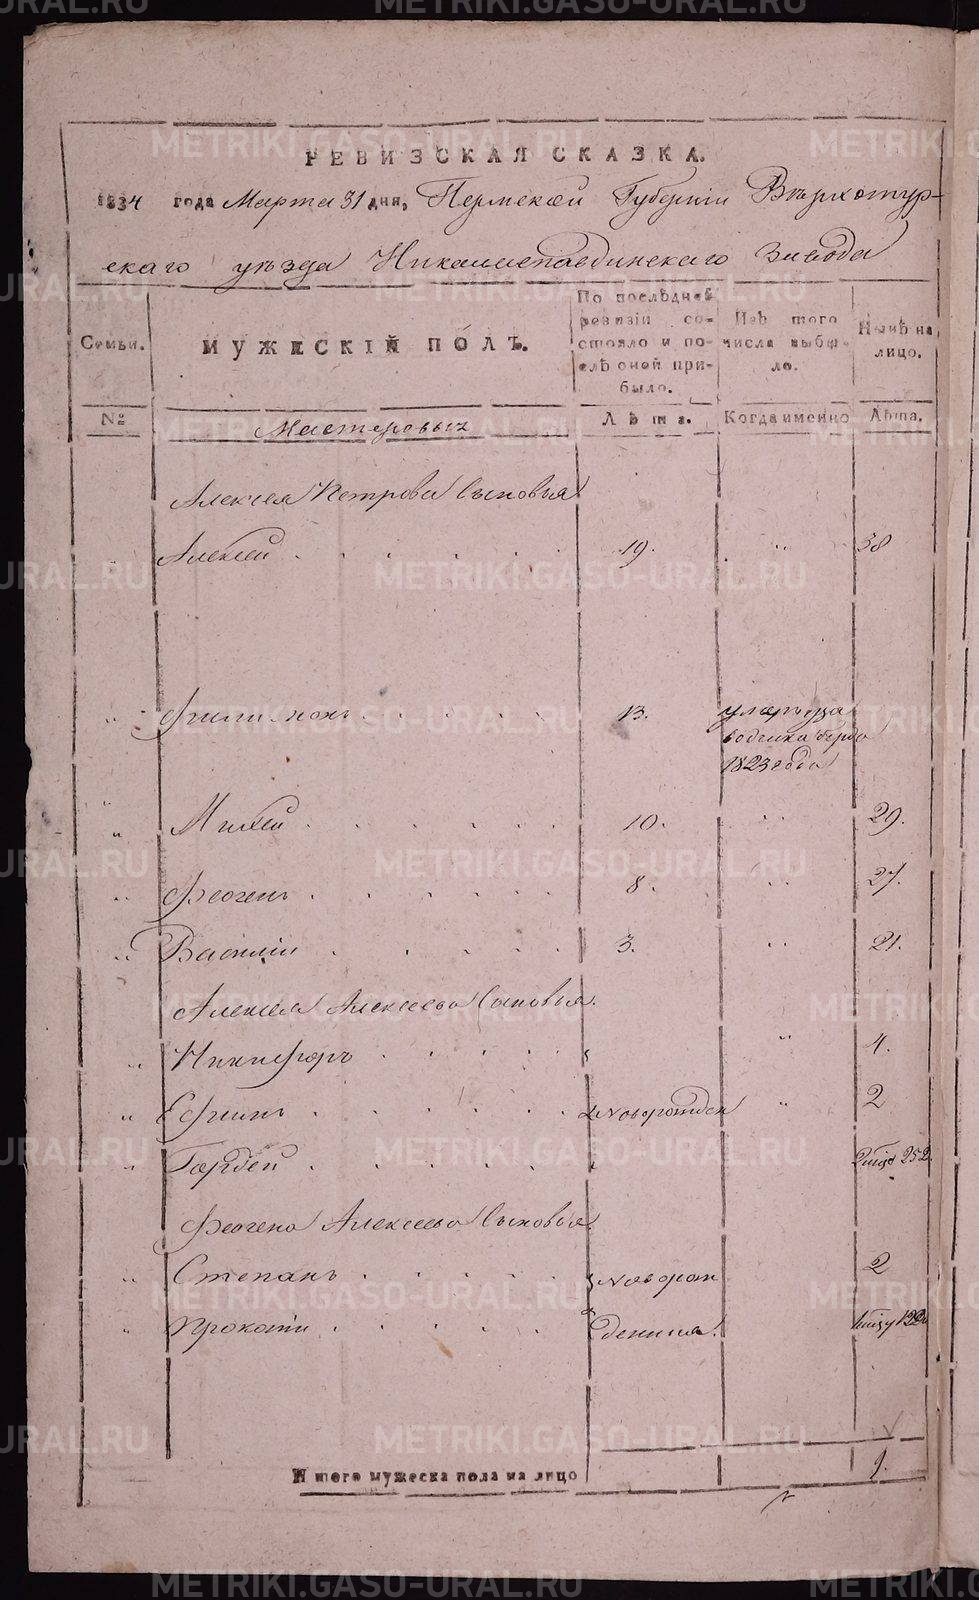 РЕВИЗСКАЯ СКАЗКА.
1834 года Марта 31 дня, Пермской Губернiи Верхотур-
скаго уезда Николаепавдинскаго Завода
Семьи.
МУЖЕСКIЙ ПОЛЪ.
По послѣдней ревизiи состояло и послѣ оней прибыло.
Изъ того числа выбыло.
Нынѣ на лицо.
№
Мастеровых
Лѣта.
Когда именно
Лѣта.
Алексея Петрова Сыновья
Алексей 19. 38
Филимонъ 13. умеръ
1823 года
Михей 10. 29.
Феогенъ 8. 27.
Василiи 3. 21.
Алексея Алексеева Сыновья.
Никифоръ 4.
Ефимъ Новорожден 2
Гордей
Феогена Алексеева Сыновья
Степанъ Новорож 2
Прокопiи денныя.
Итого мужеска пола на лицо 9.
METRIKI.GASO-URAL.RU